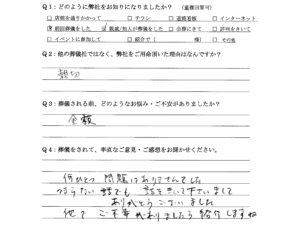 Q1：どのように弊社をお知りになりましたか？（重複回答可）
□ 店前を通りかかって □ チラシ □ 道路看板 □ インターネット
前回葬儀をした 親戚/知人が葬儀をした □ 会葬にきて □ 評判をきいて
□ イベントに参加して □ 紹介で（ 様） □ その他
Q2：他の葬儀社ではなく、弊社をご用命頂いた理由はなんですか？
親切
Q3：葬儀される前、どのようなお悩み・ご不安がありましたか？
金額
Q4：葬儀をされて、率直なご意見・ご感想をお聞かせください。
何ひとつ問題はありませんでした
つまらない話でも 話をきいて下さいまして
ありがとうございました
他で ご不幸がありましたら紹介しますね